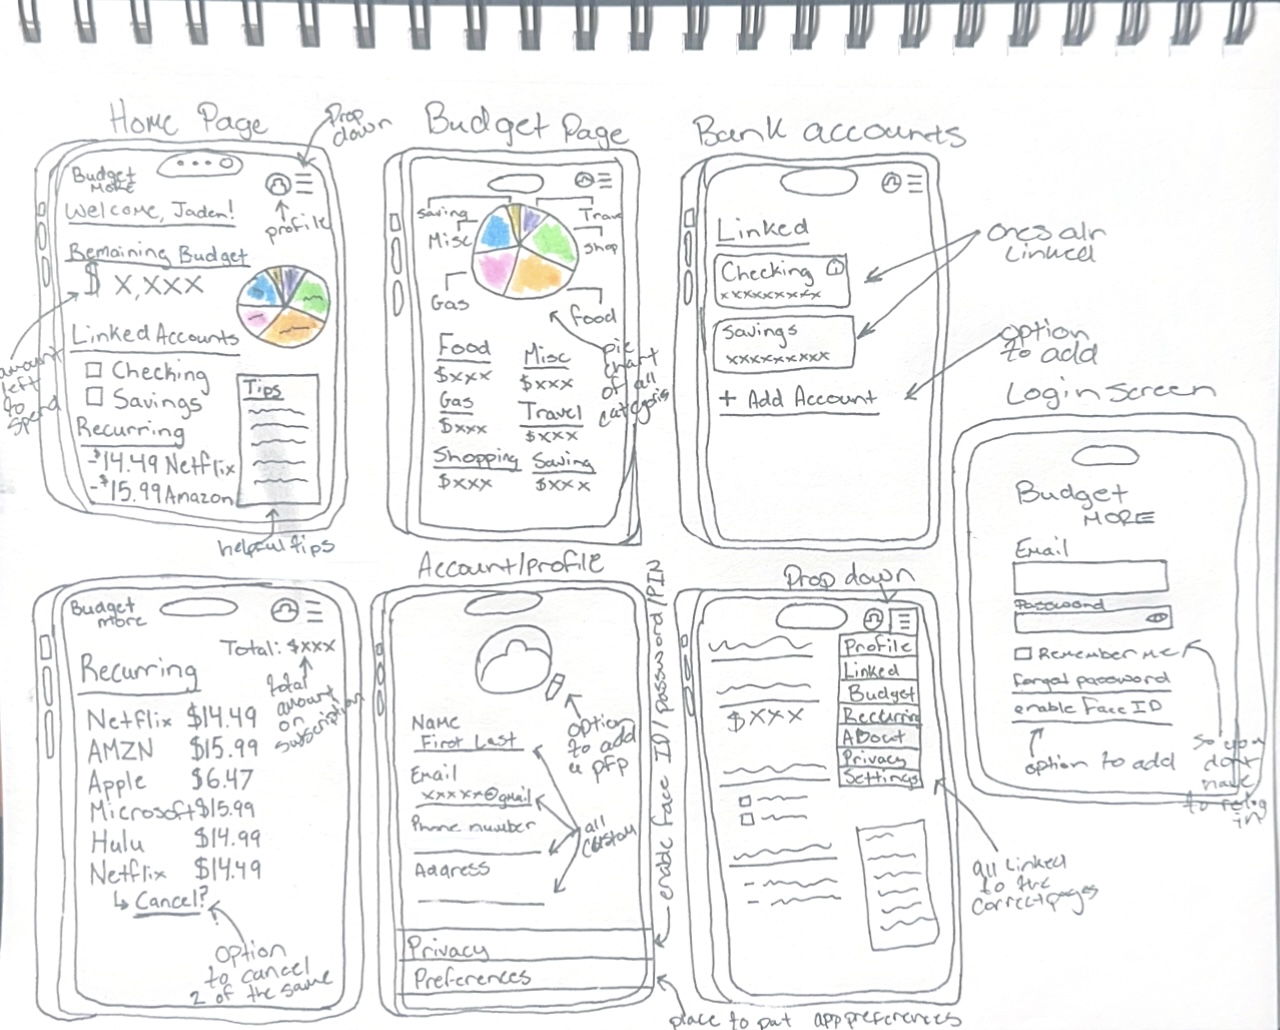 Home Page
Drop
down
Budget
MORE
profile
Welcome, Jaden!
Remaining Budget
$ X,XXX
amount
left
to
spend
Linked Accounts
Checking
Savings
Recurring
-$14.49 Netflix
-$15.99 Amazon
Tips
helpful tips
Budget Page
Saving
Misc
Gas
Travel
Shop
Food
pie
chart
of all
categoris
Food
$xxx
Gas
$xxx
Shopping
$xxx
Misc
$xxx
Travel
$xxx
Saving
$xxx
Bank accounts
Linked
Checking
xxxxxxxxx
Savings
xxxxxxxxx
+ Add Account
ones alr
Linked
option
to add
Login Screen
Budget
MORE
Email
Password
Remember me
forgot password
enable Face ID
option to add
so you
dont
have
to relog
in
Budget
more
Total: $xxx
total
amount
on
subscription
Recurring
Netflix $14.49
AMZN $15.99
Apple $6.47
Microsoft $15.99
Hulu $14.99
Netflix $14.49
↳ Cancel?
option
to cancel
2 of the same
Account/profile
option
to add
a pfp
Name
First Last
Email
xxxxx@gmail
Phone number
Address
all
custom
Privacy
Preferences
enable Face ID/password/PIN
place to put app preferences
Drop down
Profile
Linked
Budget
Recurring
About
Privacy
Settings
$xxx
all linked
to the
correct pages